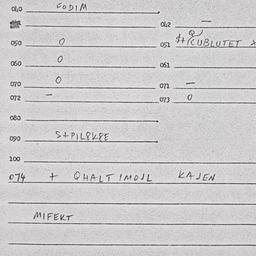 040 FODIM
042 —
050 0
051
060 0
061
070 0
071 —
072 —
073 0
080
090 S+PIL8K8E
100
074 + QHALTIMOJL KAJEN
MIFEKT